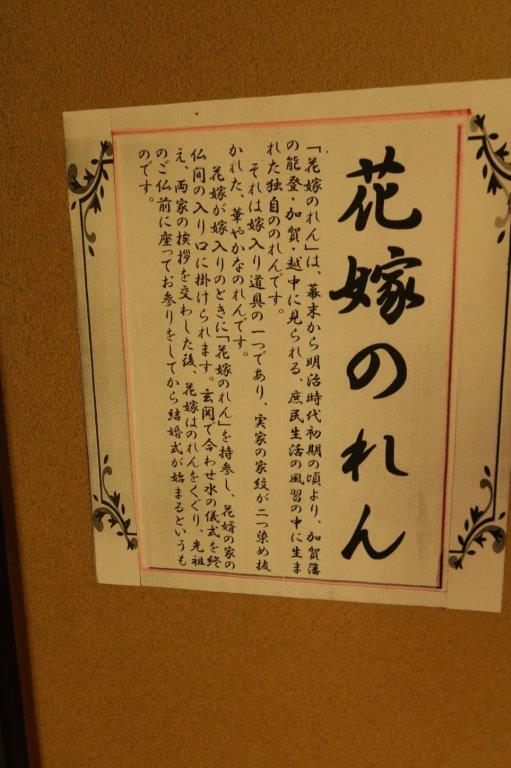 花嫁のれん
「花嫁のれん」は、幕末から明治時代初期の頃より、加賀藩
の能登・加賀・越中に見られる、庶民生活の風習の中に生ま
れた独自ののれんです。
それは嫁入り道具の一つであり、実家の家紋が二つ染め抜
かれた、華やかなのれんです。
花嫁が嫁入りのときに「花嫁のれん」を持参し、花婿の家の
仏間の入り口に掛けられます。玄関で合わせ水の儀式を終
え、両家の挨拶を交わした後、花嫁はのれんをくぐり、先祖
のご仏前に座ってお参りをしてから結婚式が始まるというも
のです。